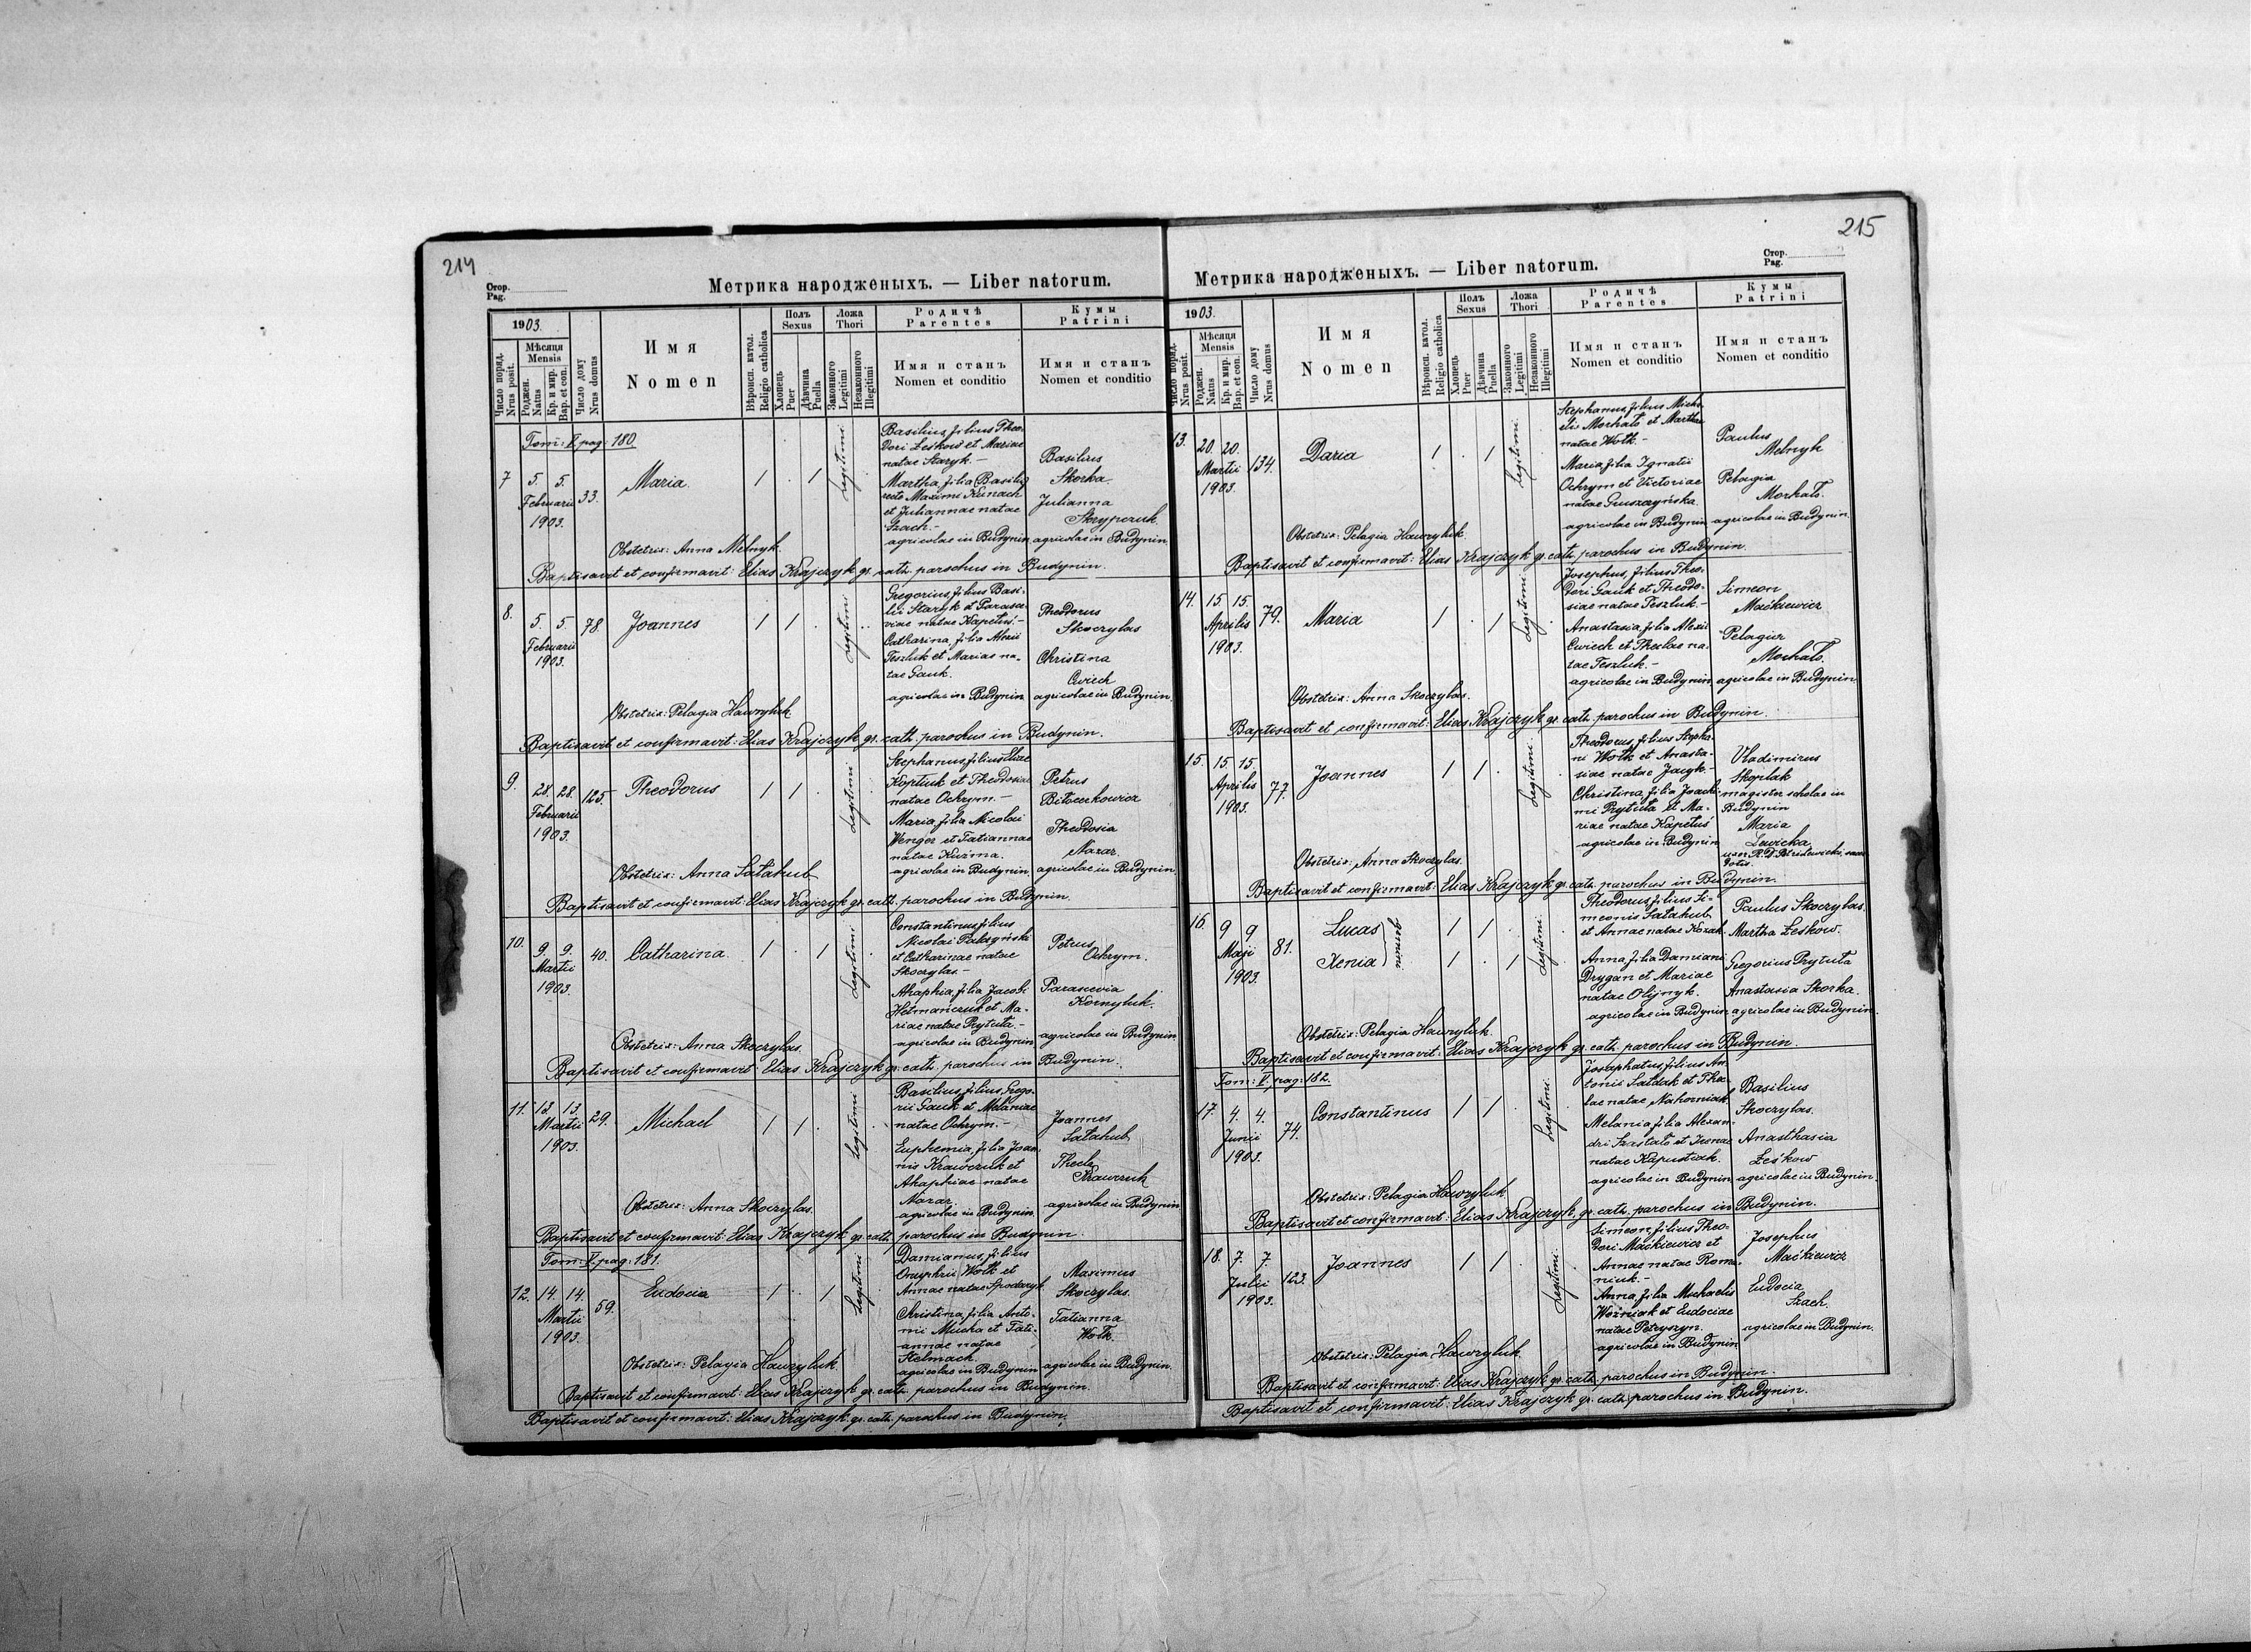 214
Стор.
Pag.
Метрика народженыхъ. — Liber natorum.
1903.
Число поряд.
Nrus posit.
Мѣсяця
Mensis
Роджен.
Natus
Кр. и мир.
Bap. et con.
Число дому
Nrus domus
Имя
Nomen
Вѣроисп. катол.
Religio catholica
Полъ
Sexus
Хлопець
Puer
Дѣвчина
Puella
Ложа
Thori
Законного
Legitimi
Незаконного
Illegitimi
Родичѣ
Parentes
Имя и станъ
Nomen et conditio
Кумы
Patrini
Имя и станъ
Nomen et conditio
Tom: V. pag: 180.
7 5. 5.
Februarii
1903.
33.
Maria.
/ . /
Legitimi
Basilius, filius Theo-
dori Leśkow et Mariae
natae Staryk.—
Martha, filia (Basilii)
recte Maximi Kunach
et Juliannae natae
Szach.—
agricolae in Budynin
Basilius
Skorka.
Julianna
Skrypczuk.
agricolae in Budynin.
Obstetrix: Anna Melnyk.
Baptisavit et confirmavit: Elias Krajczyk gr. cath. parochus in Budynin.
8. 5. 5
Februarii
1903.
78.
Joannes
/ / .
Legitimi
Gregorius, filius Basi-
lii Staryk et Parasce-
viae natae Kapeluś.—
Catharina, filia Alexii
Teszluk et Mariae na-
tae Gauk.
agricolae in Budynin
Theodorus
Skoczylas
Christina
Cwiech
agricolae in Budynin.
Obstetrix: Pelagia Hawryluk
Baptisavit et confirmavit: Elias Krajczyk gr. cath. parochus in Budynin.
9. 28. 28.
Februarii
1903.
125.
Theodorus
/ / .
Legitimi
Stephanus, filius Eliae
Koptiuk et Theodosiae
natae Ochrym.—
Maria, filia Nicolai
Wenger et Tatiannae
natae Kuźma.
agricolae in Budynin.
Petrus
Theodosia
Nazar.
agricolae in Budynin.
Obstetrix: Anna Sałahub
Baptisavit et confirmavit: Elias Krajczyk gr. cath. parochus in Budynin.
10. 9. 9.
Martii
1903.
40.
Catharina.
/ . /
Legitimi
Constantinus, filius
Nicolai
et Catharinae natae
Skoczylas.—
Ahaphia, filia Jacobi
Hetmanczuk et Ma-
riae natae Prytuła.—
agricolae in Budynin
Petrus
Ochrym.
Parascevia
Kornyluk.
agricolae in Budynin
Obstetrix: Anna Skoczylas.
Baptisavit et confirmavit: Elias Krajczyk gr. cath. parochus in Budynin.
11. 12 13.
Martii
1903.
29.
Michael
/ / .
Legitimi
Basilius, filius Grego-
rii Gauk et Melaniae
natae Ochrym.—
Euphemia, filia Joan-
nis Krawczuk et
Ahaphiae natae
Nazar.
agricolae in Budynin.
Joannes
Sałahub
Thecla
Krawczuk
agricolae in Budynin
Obstetrix: Anna Skoczylas.
Baptisavit et confirmavit: Elias Krajczyk gr. cath. parochus in Budynin.
Tom: V. pag: 181.
12. 14. 14.
Martii
1903.
59.
Eudocia
/ . /
Legitimi
Damianus, filius
Onuphrii Wołk et
Annae natae Spodaryk.
Christina, filia Anto-
nii Mucha et Tati-
annae natae
Stelmach.
agricolae in Budynin
Maximus
Skoczylas.
Tatianna
Wołk.
agricolae in Budynin.
Obstetrix: Pelagia Hawryluk.
Baptisavit et confirmavit: Elias Krajczyk gr. cath. parochus in Budynin.
Baptisavit et confirmavit: Elias Krajczyk gr. cath. parochus in Budynin.
215
Стор.
Pag.
Метрика народженыхъ. — Liber natorum.
1903.
Число поряд.
Nrus posit.
Мѣсяця
Mensis
Роджен.
Natus
Кр. и мир.
Bap. et con.
Число дому
Nrus domus
Имя
Nomen
Вѣроисп. катол.
Religio catholica
Полъ
Sexus
Хлопець
Puer
Дѣвчина
Puella
Ложа
Thori
Законного
Legitimi
Незаконного
Illegitimi
Родичѣ
Parentes
Имя и станъ
Nomen et conditio
Кумы
Patrini
Имя и станъ
Nomen et conditio
13. 20. 20.
Martii
1903.
134.
Daria
/ . /
Legitimi
Stephanus, filius Micha-
elis Morhało et Marthae
natae Wołk.—
Maria, filia Ignatii
Ochrym et Victoriae
natae Gruszczyńska.
agricolae in Budynin
Paulus
Melnyk
Pelagia
Morhało.
agricolae in Budynin.
Obstetrix: Pelagia Hawryluk
Baptisavit et confirmavit: Elias Krajczyk gr. cath. parochus in Budynin.
14. 15. 15.
Aprilis
1903.
79.
Maria
/ . /
Legitimi
Josephus, filius Theo-
dori Gauk et Theodo-
siae natae Teszluk.—
Anastasia, filia Alexii
Cwiech et Theclae na-
tae Teszluk.—
agricolae in Budynin
Simeon
Maćkiewicz
Pelagia
Morhało.
agricolae in Budynin
Obstetrix: Anna Skoczylas.
Baptisavit et confirmavit: Elias Krajczyk gr. cath. parochus in Budynin.
15. 15 15.
Aprilis
1903.
77.
Joannes
/ / .
Legitimi
Theodorus, filius Stepha-
ni Wołk et Anasta-
siae natae Jacyk.—
Christina, filia Joachi-
mi Prytuła et Ma-
riae natae Kapeluś
agricolae in Budynin
Vladimirus
Skoplak
magister scholae in
Budynin
Maria
Lewicka
Obstetrix: Anna Skoczylas.
Baptisavit et confirmavit: Elias Krajczyk gr. cath. parochus in Budynin.
16. 9 9
Maji
1903.
81.
Lucas
Xenia
gemini
/ / .
/ . /
Legitimi
Theodorus, filius Si-
meonis Sałahub
et Annae natae Kozak.
Anna, filia Damiani
Drygan et Mariae
natae Olijnyk.
agricolae in Budynin
Paulus Skoczylas.
Martha Leśkow.
Gregorius Prytuła
Anastasia Skorka.
agricolae in Budynin.
Obstetrix: Pelagia Hawryluk
Baptisavit et confirmavit: Elias Krajczyk gr. cath. parochus in Budynin.
Tom: V. pag: 182.
17. 4. 4.
Junii
1903.
74.
Constantinus
/ / .
Legitimi
Josaphatus, filius An-
tonii Sałdak et Thec-
lae natae Nahorniak.
Melania filia Alexan-
dri Szastało et Xeniae
natae Kapustiak.
agricolae in Budynin
Basilius
Skoczylas.
Anasthasia
Leśkow
agricolae in Budynin.
Obstetrix: Pelagia Hawryluk
Baptisavit et confirmavit: Elias Krajczyk, gr. cath. parochus in Budynin.
18. 7. 7.
Julii
1903.
123.
Joannes
/ / .
Legitimi
Simeon, filius Theo-
dori Maćkiewicz et
Annae natae Roma-
niuk.—
Anna, filia Michaelis
Woźniak et Eudociae
natae Petryszyn.
agricolae in Budynin
Josephus
Maćkiewicz
Eudocia
Szach.
agricolae in Budynin.
Obstetrix: Pelagia Hawryluk.
Baptisavit et confirmavit: Elias Krajczyk gr. cath. parochus in Budynin.
Baptisavit et confirmavit: Elias Krajczyk gr. cath. parochus in Budynin.